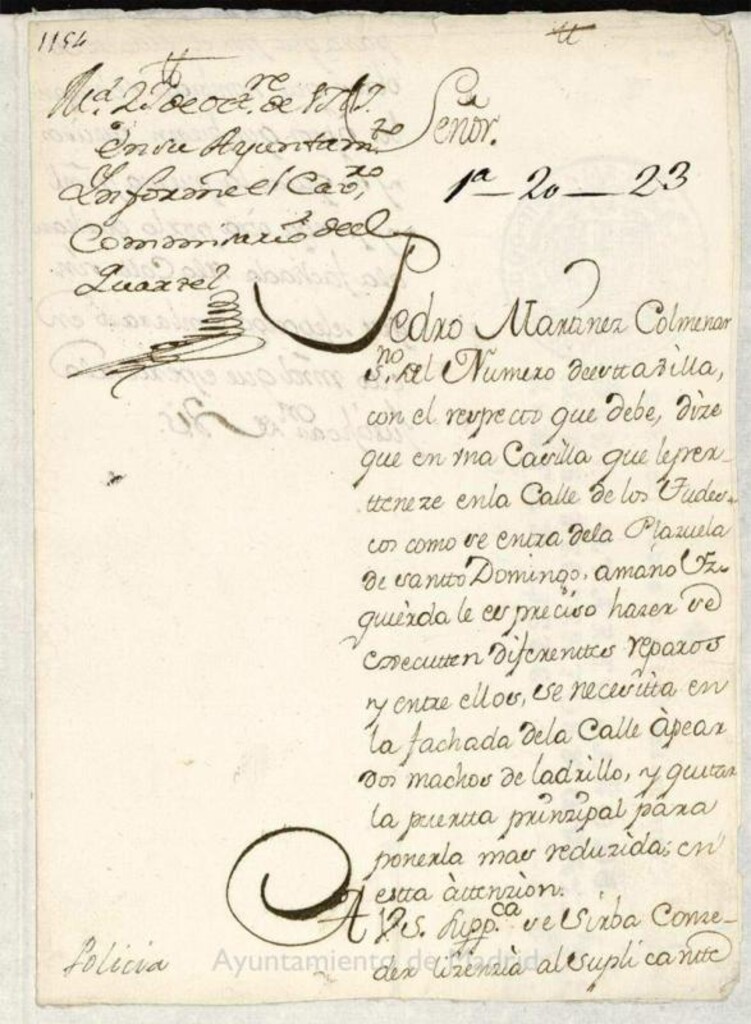 1154
tt
Md. 27 de octre. de 17
Señor.
En su Ayuntamto.
Informe el Cavro.
1ª – 20 – 23
Commisario. deel
Quartel
Pedro Martinez Colmenar
sno. del Numero deestta villa,
con el respecto que debe, dize
que en vna Casilla que leper-
tteneze enla Calle de los Tudes-
cos como se entra dela Plazuela
de santto Domingo, amano Yz-
quierda le es preciso hazer se
executten diferenttes reparos
y entre ellos, se necesitta en
la fachada dela Calle àpear
dos machos de ladrillo, y quitar
la puertta prinzipal para
ponerla mas reduzida; en
estta àttenzion.
A V.S. suppca. se sirba Conze-
der lizenzia al suplicantte
Policia
Ayuntamiento de Madrid